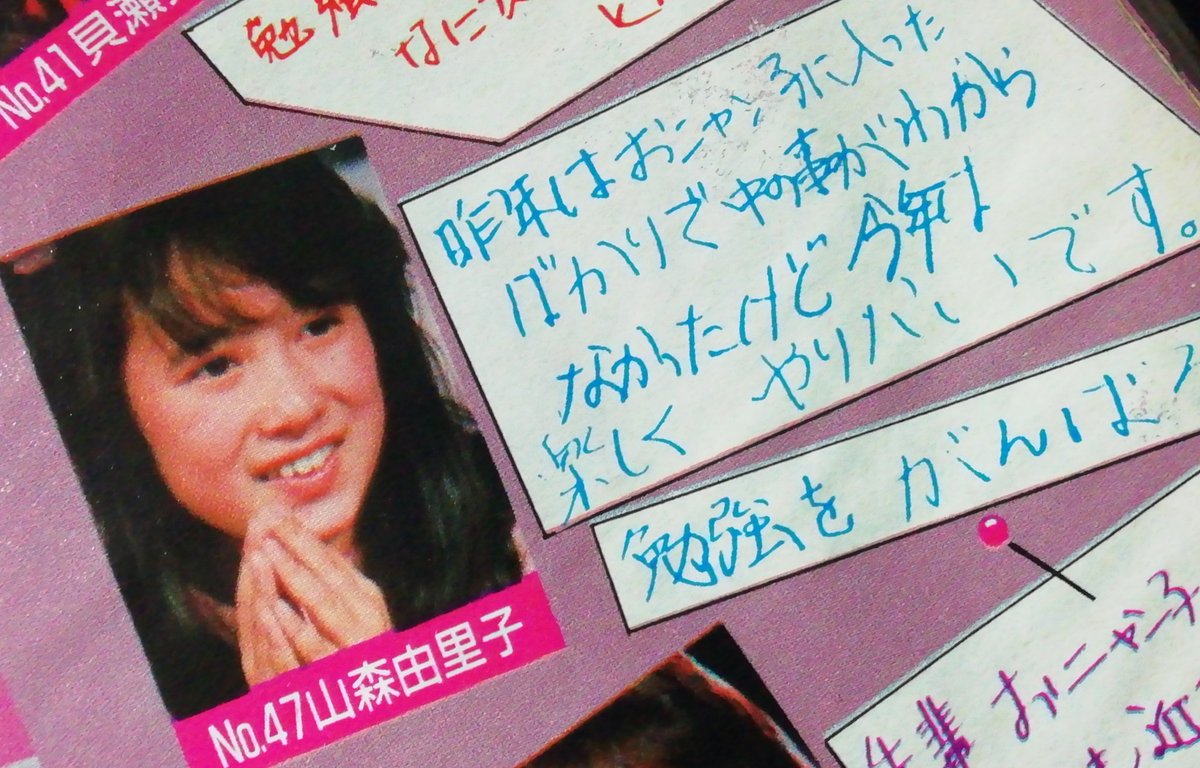 No.41貝瀬
勉強
なに
昨年はおニャン子に入った
ばかりで中の事がわから
なかったけど今年は
楽しく やりたいです。
勉強をがんば
No.47山森由里子
先輩おニャン子
近